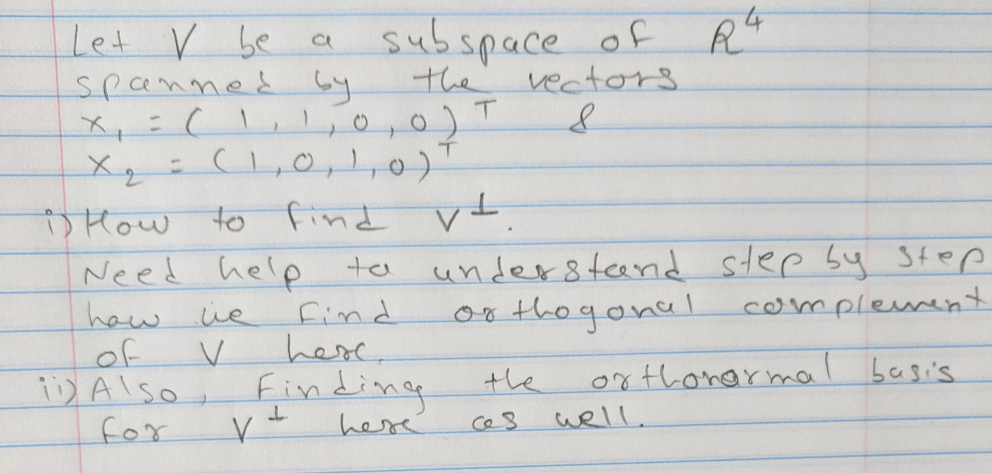 Let V be a subspace of R⁴
spanned by the vectors
x₁ = (1, 1, 0, 0)ᵀ &
x₂ = (1, 0, 1, 0)ᵀ
i) How to find V⊥.
Need help to understand step by step
how we find orthogonal complement
of V here.
ii) Also, finding the orthonormal basis
for V⊥ here as well.